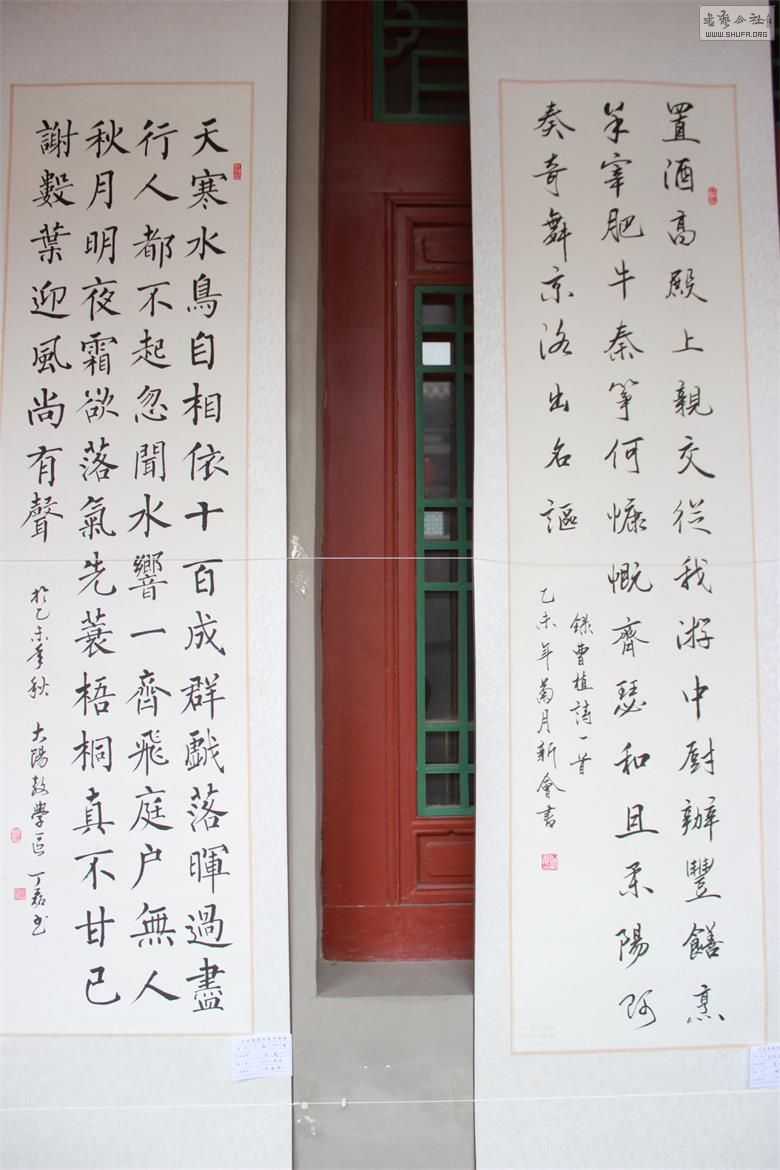 書藝公社
WWW.SHUFA.ORG
置酒高殿上親交從我游中厨辦豐饍烹
羊宰肥牛秦箏何慷慨齊瑟和且柔陽阿
奏奇舞京洛出名謳
錄曹植詩一首
乙未年菊月新會書
天寒水鳥自相依十百成群戱落暉過盡
行人都不起忽聞水響一齊飛庭户無人
秋月明夜霜欲落氣先蓑梧桐真不甘已
謝數葉迎風尚有聲
於乙未季秋 大陽教學區 丁磊書